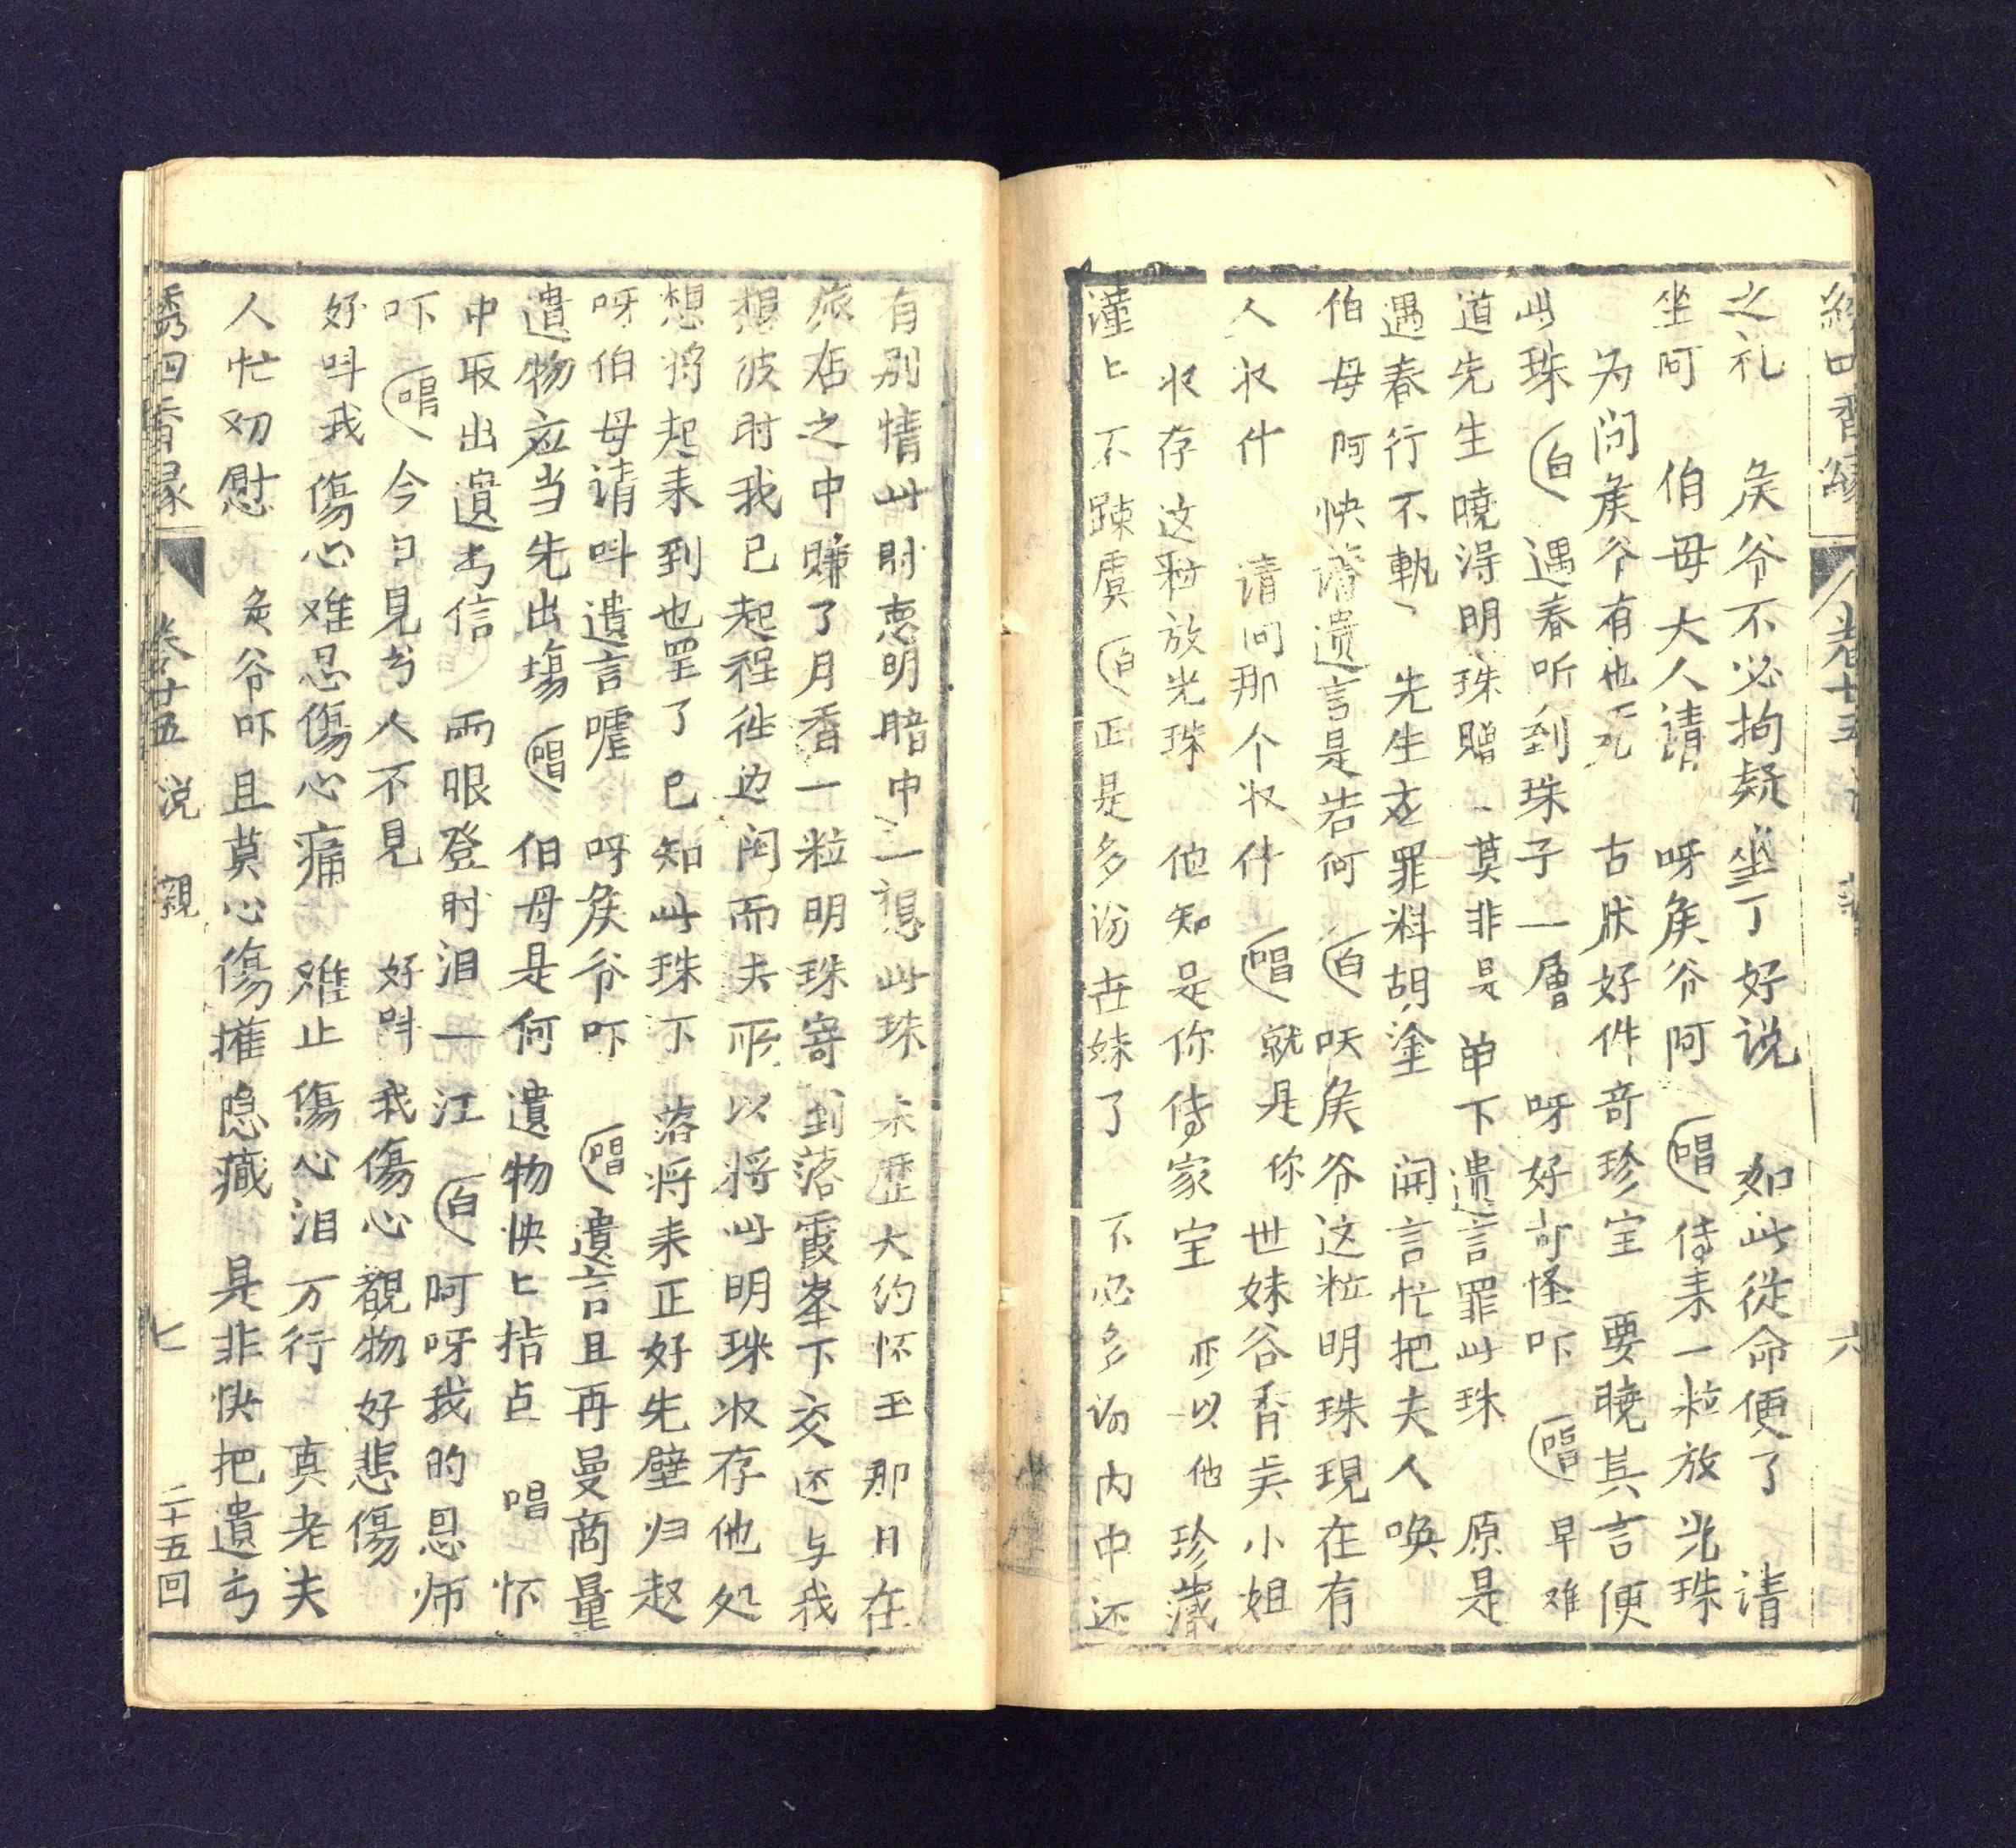 之礼　矦爷不必拘疑坐了好说　如此従命便了　请
坐呵　伯母大人请　呀矦爷阿　唱　侍耒一粒放光珠
为问矦爷有也无　古牀好件奇珍宝　要曉其言便
此珠　白　遇春听到珠子一層　呀好奇怪吓　唱　早难
道先生曉淂明珠赠　莫非是　单下遗言罪此珠　原是
遇春行不軌　先生立罪料胡塗　闲言忙把夫人唤
伯母呵　快　遗言是若何　白　呋矦爷这粒明珠現在有
人收什　请问那个收什　唱　就是你世妹谷香美小姐
收存这粒放光珠　他知是你侍家宝　亦以他珍藏
谨匕不踈虞　白　正是多　世妹了　不必多　内中还
有别情此时惠明暗中一想此珠未歷大约怀玉那日在
旅店之中赚了月香一粒明珠寄到落霞峯下交还与我
想彼时我已起程徃边闰而去所以将此明珠收存他处
想将起耒到也罢了已知此珠下落将耒正好先壁归赵
呀伯母请呌遺言嘘　呀矦爷吓　唱　遺言且再曼商量
遺物应当先出塲　唱　伯母是何遺物快匕指点　唱　怀
中取出遺书信　両眼登时泪一江　白　呵呀我的恩师
吓　唱　今日見兮人不見　好呌我傷心覩物好悲傷
好呌我傷心难忍傷心痛　难止傷心泪万行　真老夫
人忙劝慰　矦爷吓且莫心傷摧隐蔵　是非快把遺兮
绣四香縁　卷廿五　说親　七　二十五回